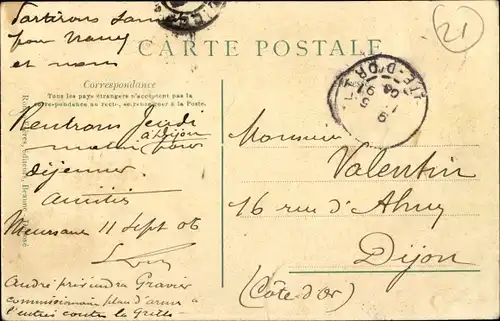 Partirons
pour Nancy
et
21
CARTE POSTALE
Correspondance
Tous les pays étrangers n'acceptent pas la
correspondance au recto, se renseigner à la Poste.
Rentrons Jeudi
à Dijon
matin pour
déjeuner.
amitiés
Meursault 11 Sept 06
André préviendra Gravier
commissionnaire place d'armes à
l'entrée contre la Grille
CÔTE-D'OR
Monsieur
Valentin
16 rue d'Ahuy
Dijon
(Côte d'Or)